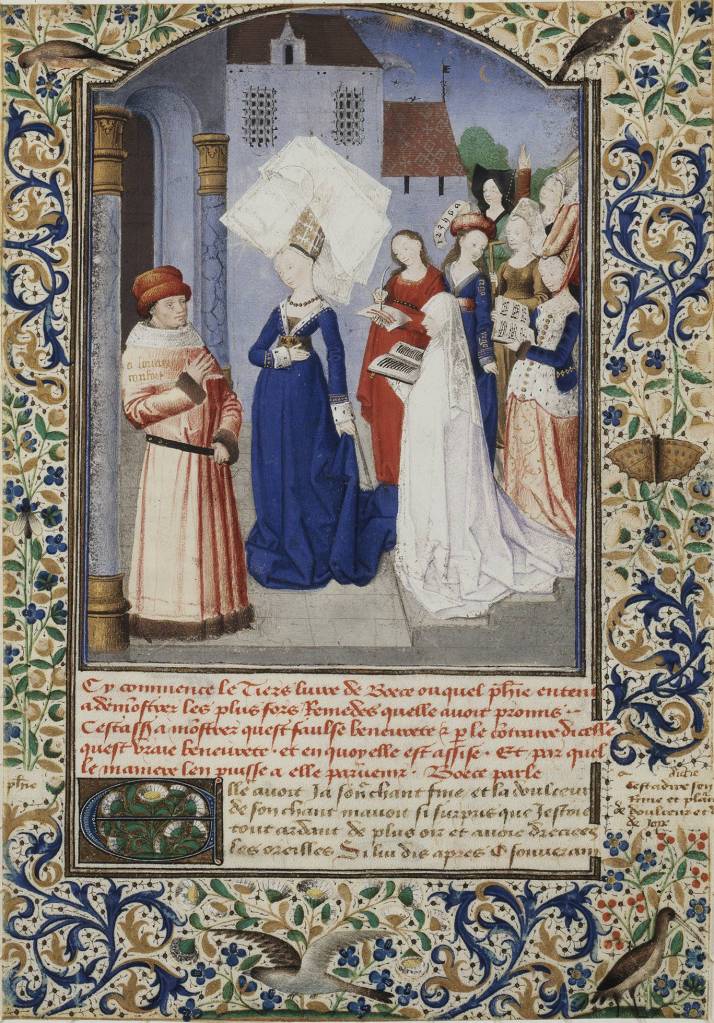 Cy commence le Tiers livre de Boece ouquel phie entent
a demostrer les plus fors Remedes quelle avoit promis
Cestass a mostrer quest faulse beneurete & p le contraire dicelle
quest vraie beneurete · et en quoy elle est assise · Et par quel
le maniere len puisse a elle parvenir · Boece parle
phie
Elle avoit Ja son chant fine et la doulceur
de son chant mavoit si surpris que Jestoie
tout ardant de plus oir et avoie dreciees
les oreilles Si lui dis apres O souverain
Cestadire son
rime et plain
de doulceur et
de